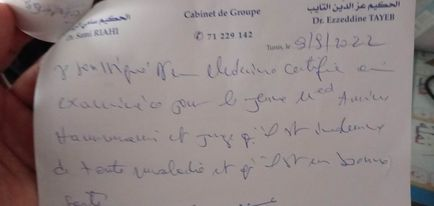 الحكيم عز الدين التايب
Cabinet de Groupe
Dr. Sami RIAHI
Dr. Ezzeddine TAYEB
✆ 71 229 142
Tunis, le 9/9/2022
Je soussigné Dr en Médecine certifie avoir
examiné ce jour le jeune Med Amine
et juge qu'il est indemne
de toute maladie et qu'il est en bonne
santé